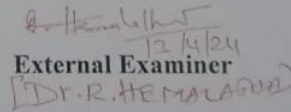 12/4/24
External Examiner
[Dr.R.HEMALATHA]